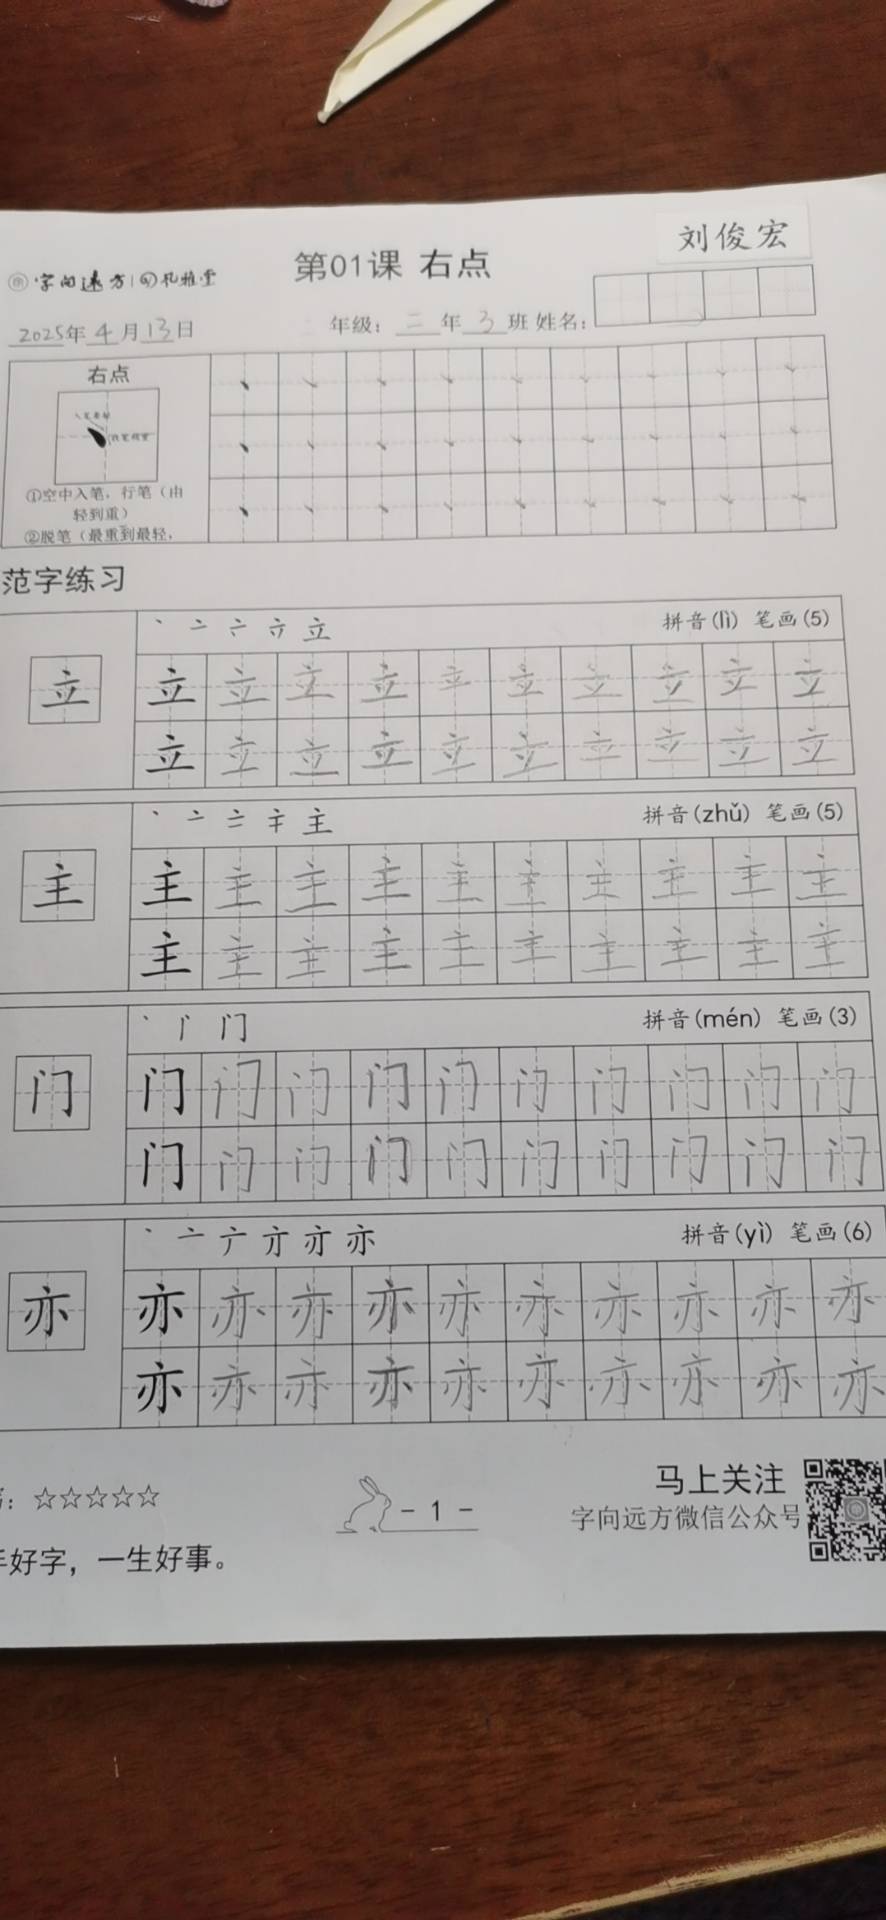 刘俊宏
第01课 右点
字向远方
2025年4月13日
年级：二年3班 姓名：
右点
①空中入笔，行笔（由
轻到重）
②脱笔（最重到最轻，
范字练习
丶 亠 立
拼音(lì) 笔画(5)
立
立 立 立 立 立 立 立 立 立 立
立 立 立 立 立 立 立 立 立 立
丶 亠 主
拼音(zhǔ) 笔画(5)
主
主 主 主 主 主 主 主 主 主 主
主 主 主 主 主 主 主 主 主 主
丶 门
拼音(mén) 笔画(3)
门
门 门 门 门 门 门 门 门 门 门
门 门 门 门 门 门 门 门 门 门
丶 亠 亦
拼音(yì) 笔画(6)
亦
亦 亦 亦 亦 亦 亦 亦 亦 亦 亦
亦 亦 亦 亦 亦 亦 亦 亦 亦 亦
：☆☆☆☆☆
- 1 -
马上关注
字向远方微信公众号
好字，一生好事。